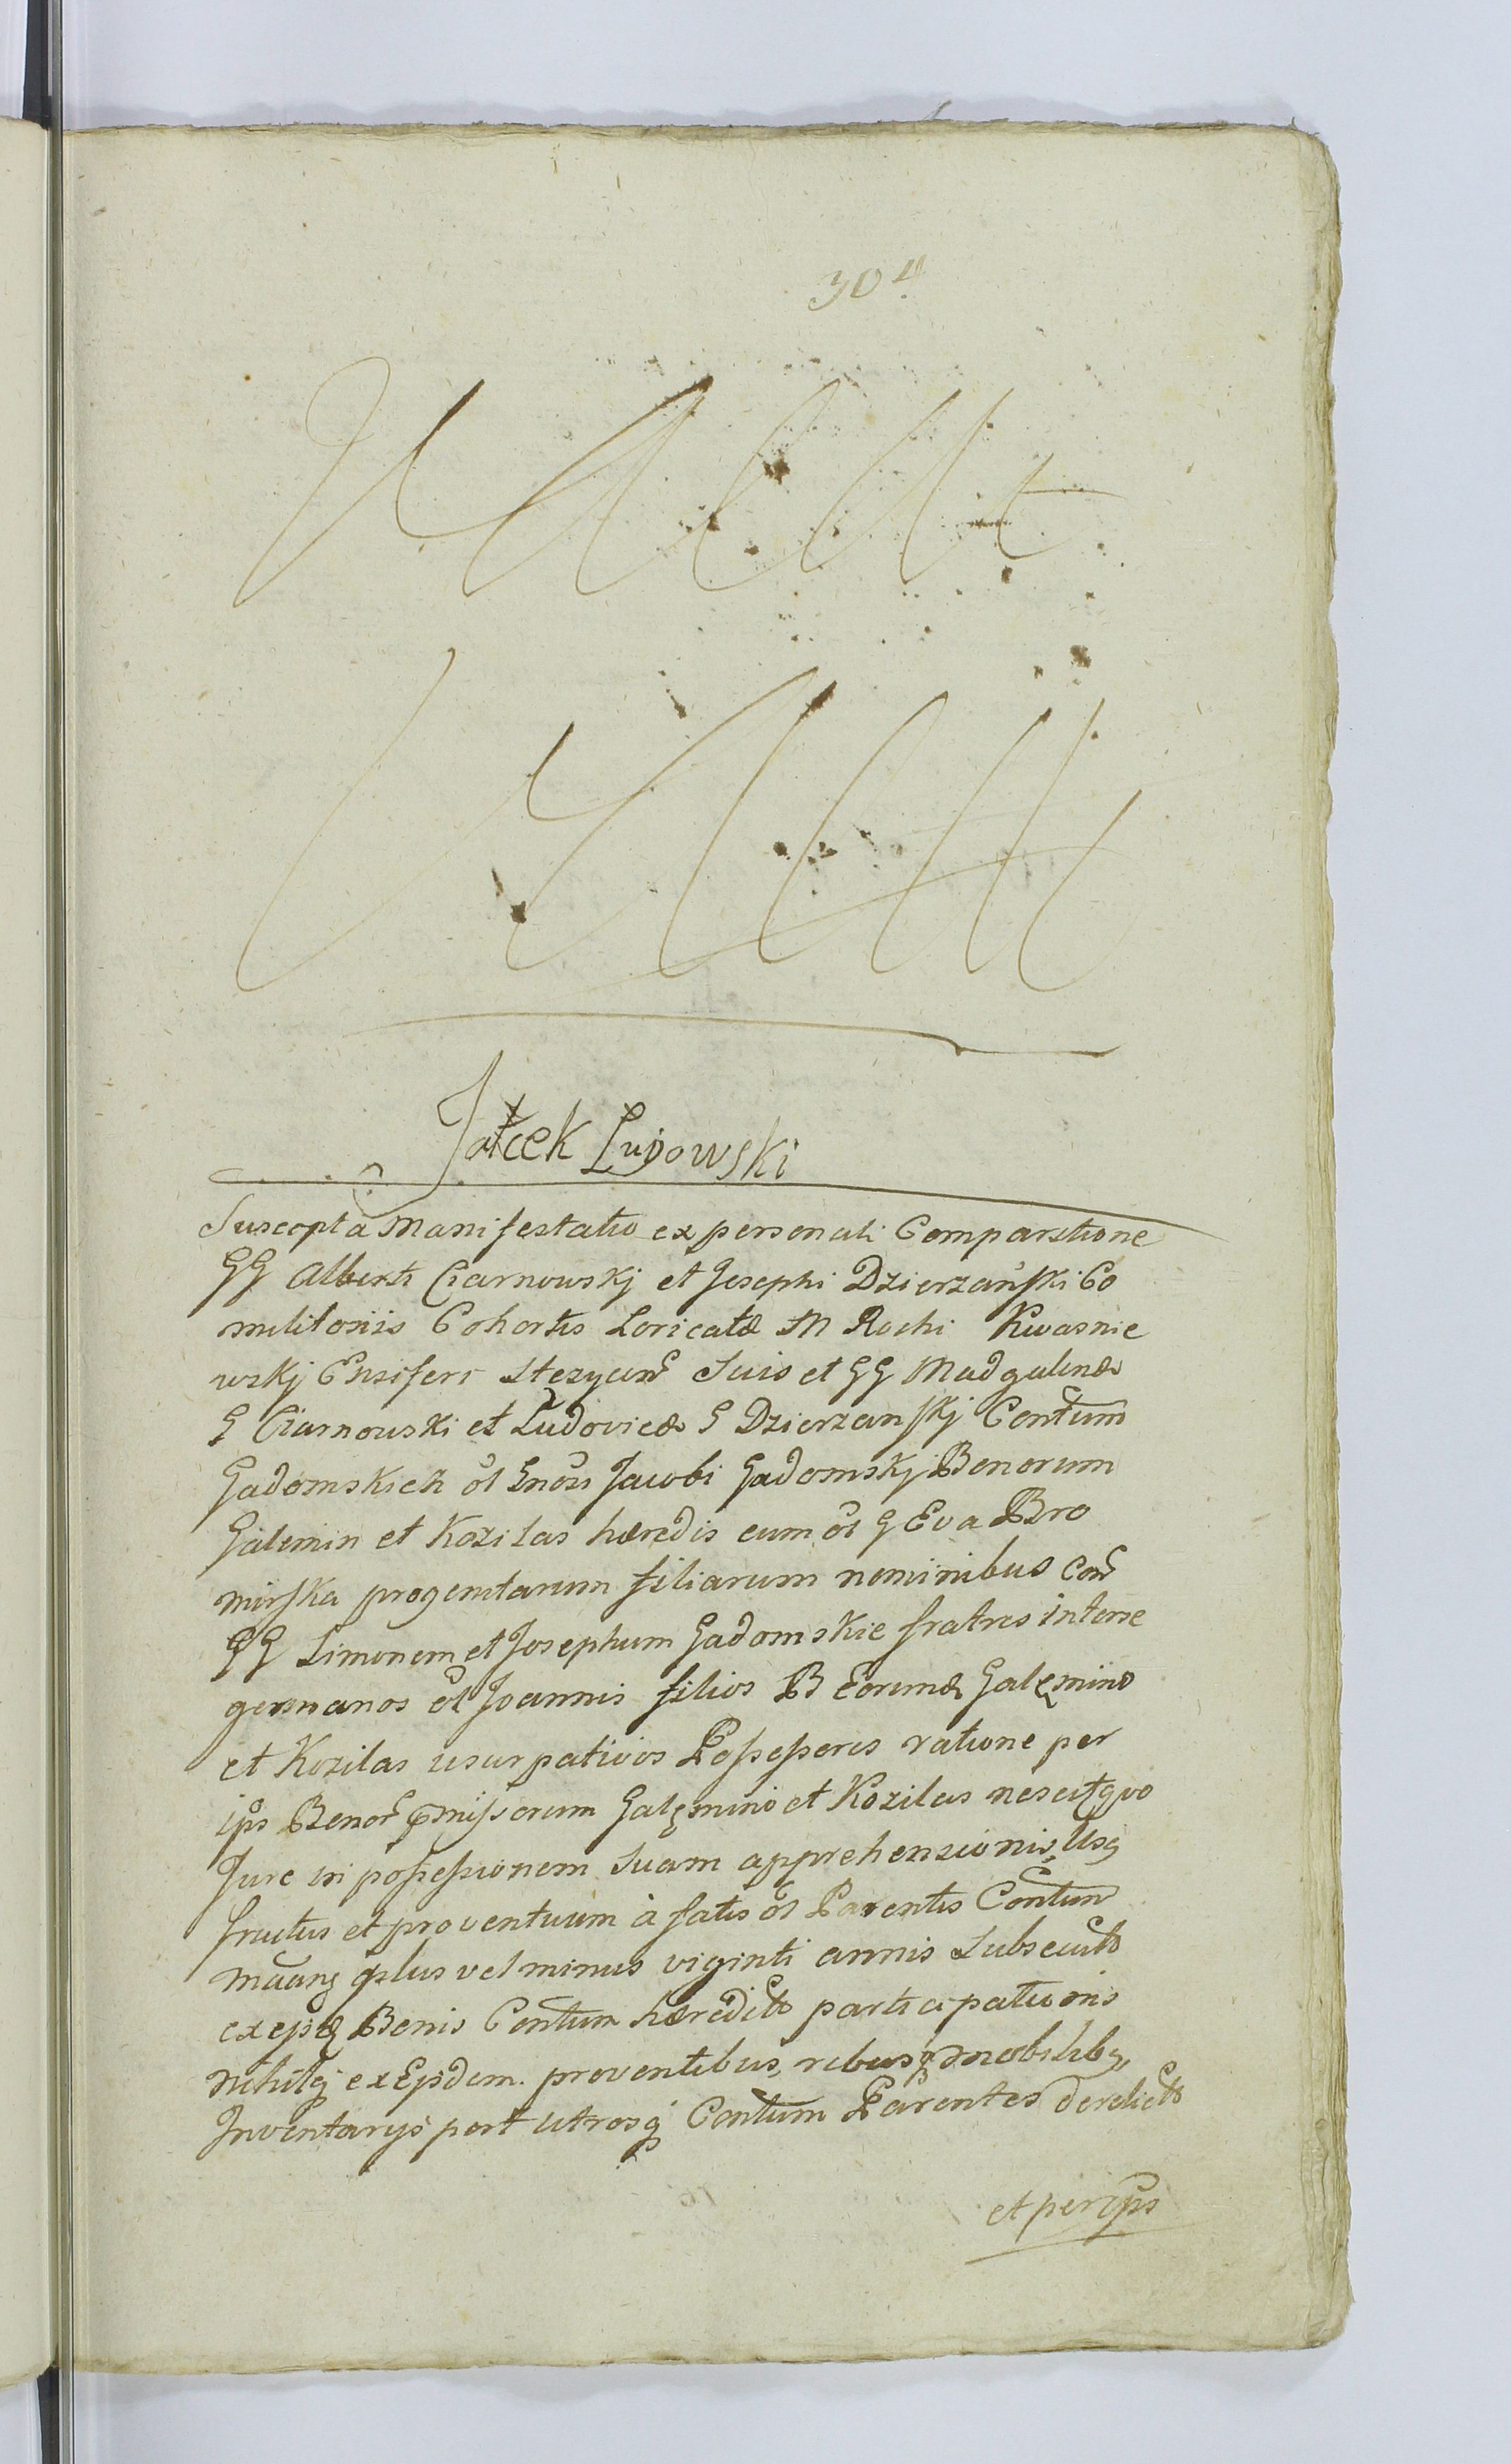 304
Jacek Lupowski
Suscepta Manifestatio ex personali Comparitione
GG Alberti Czarnowskj et Josephi Dzierzański Co
militonis Cohortis Loricatæ M Rochi Kwasnie
wskj Ensiferi Stezycen Suis et GG Madgalenæ
G Czarnowski et Ludovicæ G Dzierzanskj Contum
Gadomskich ol Gnosi Jacobi Gadomskj Bonorum
Galemin et Kozilas hæredis cum ol G Eva Bro
mirska progenitarum filiarum nominibus Con
GG Simonem et Josephum Gadomskie fratres interse
germanos ol Joannis filios B Eorumd Galęmino
et Kozilas usurpativos Possessores ratione per
ips Bonor pmissorum Galęmino et Kozilas nescitquo
Jure in possessionem Suam apprehensionis, Usq
fructus et proventuum à fatis ol Parentis Contum
plus vel minus viginti annis Subsecuto
ex ejsd Bonis Contum hæredito participationis
nihilq ex Ejsdem proventibus, rebusq mobilibq,
Inventarijs post utrosq Contum Parentes derelicto
et per ips